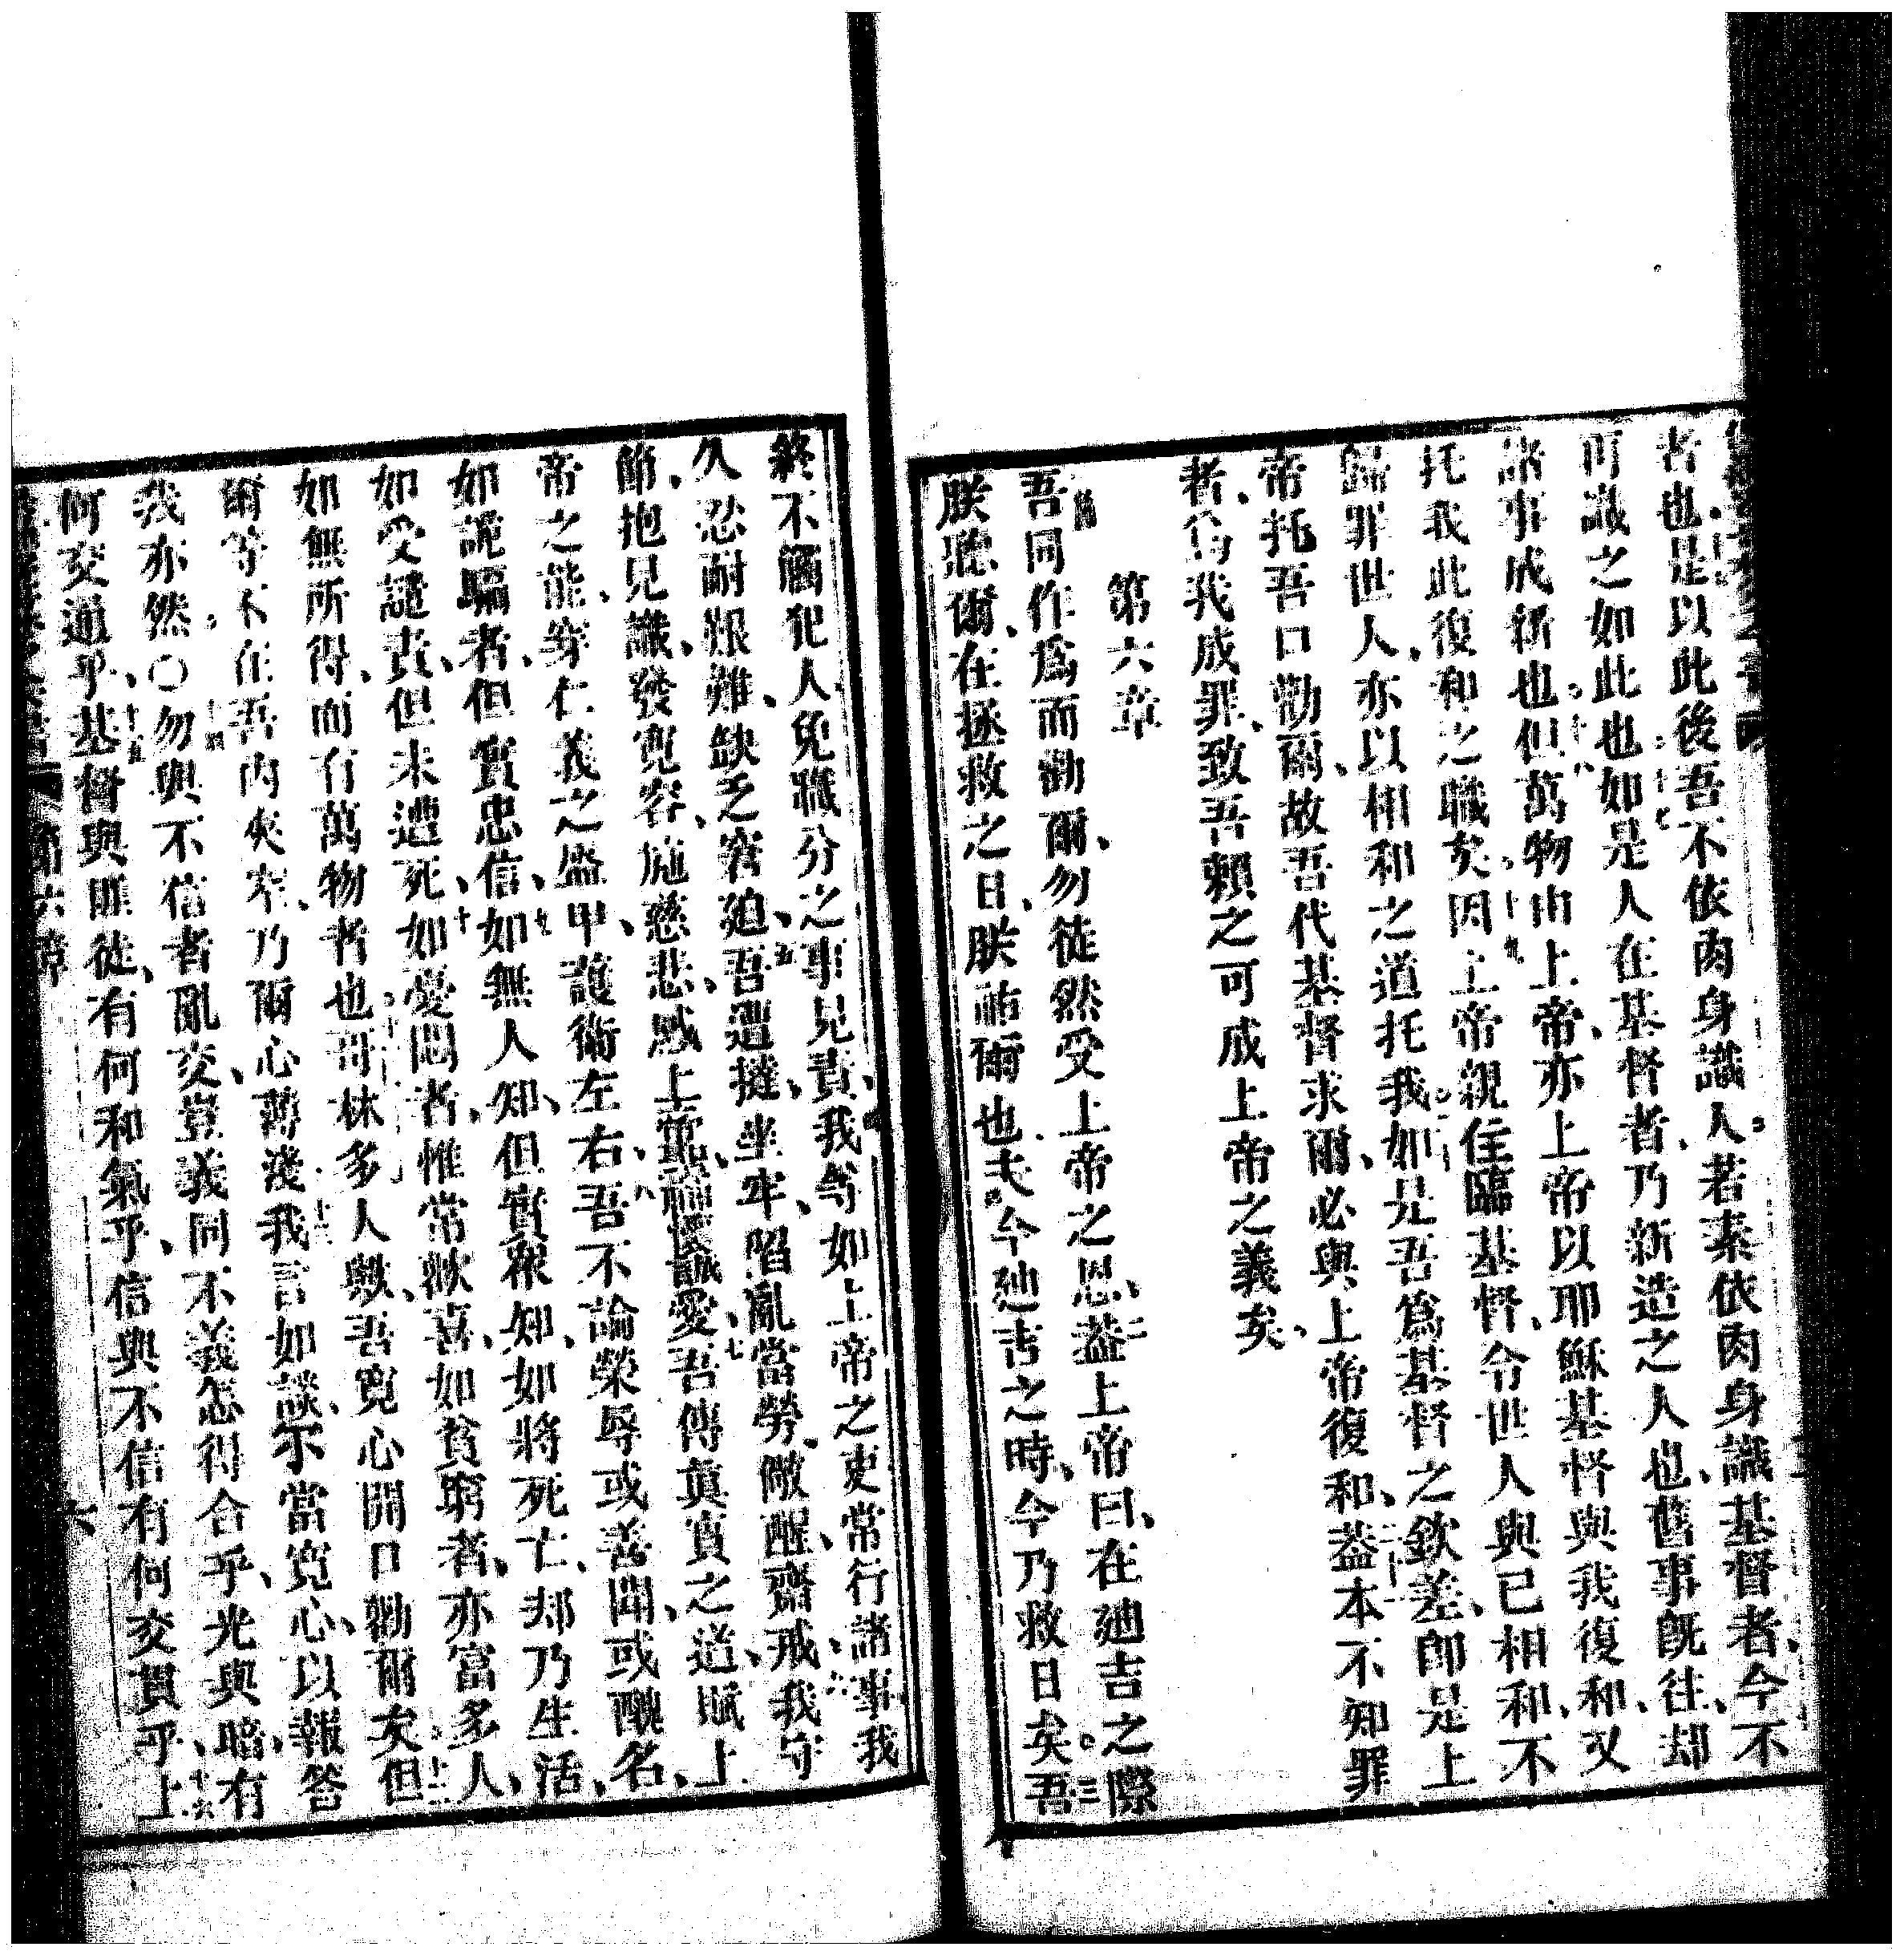 者也是以此後吾不依肉身識人若素依肉身識基督者今不
可識之如此也如是人在基督者乃新造之人也舊事既往却
諸事成新也但萬物由上帝亦上帝以耶穌基督與我復和又
托我此復和之職矣因上帝親住臨基督令世人與已相和不
歸罪世人亦以相和之道托我如是吾為基督之欽差即是上
帝托吾口勸爾故吾代基督求爾必與上帝復和蓋本不知罪
者為我成罪致吾賴之可成上帝之義矣
第六章
吾同作為而勸爾勿徒然受上帝之恩二蓋上帝曰在廸吉之際
朕聽爾在拯救之日朕祐爾也夫今廸吉之時今乃救日矣三吾
終不觸犯人免職分之事見責我等如上帝之吏常行諸事我
久忍耐艱難缺乏窘廹五吾遭撻坐牢陷亂當勞儆醒齋戒六我守
節抱見識發寬容施慈悲感上帝神懷誠愛七吾傳真實之道賦上
帝之能穿仁義之盔甲護衛左右八吾不論榮辱或善聞或醜名
如詭騙者但實忠信九如無人知但實衆知如將死亡却乃生活
如受譴責但未遭死十如憂悶者惟常歡喜如貧窮者亦富多人
如無所得而有萬物者也哥林多人歟吾寬心開口勸爾矣但
爾等不在吾內夾窄乃爾心薄淺我言如談示當寬心以報答
我亦然〇勿與不信者亂交豈義同不義怎得合乎光與暗有
何交通乎十五基督與匪徒有何和氣乎信與不信有何交貫乎十六上
第六章
六